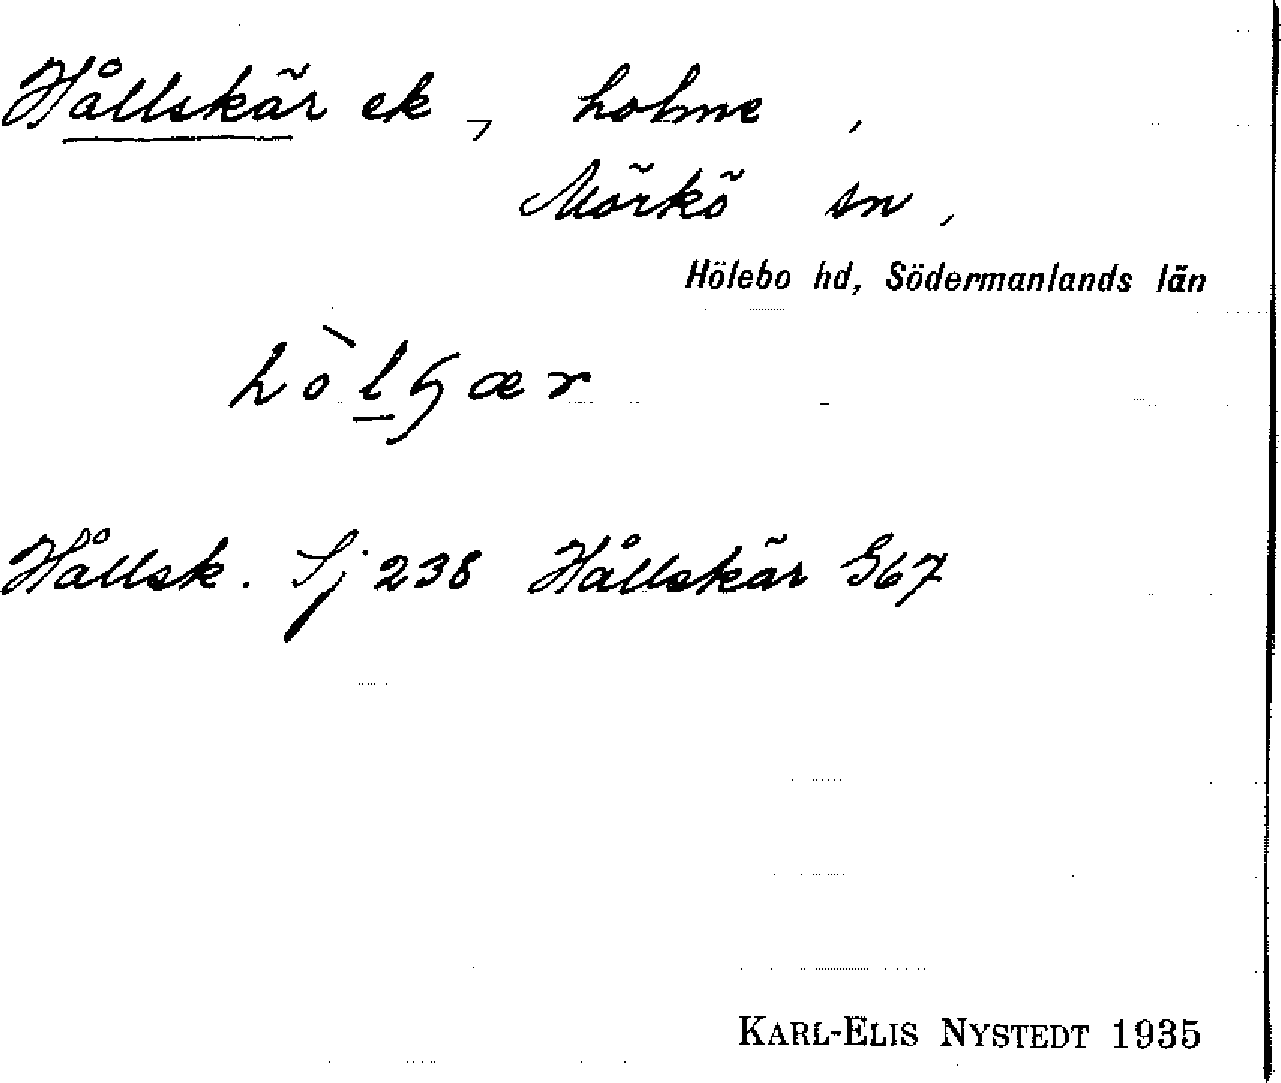 Hållskär ek, holme,
Mörkö sn,
Hölebo hd, Södermanlands län
Hållsk. Sj 238 Hållskär G67
KARL-ELIS NYSTEDT 1935